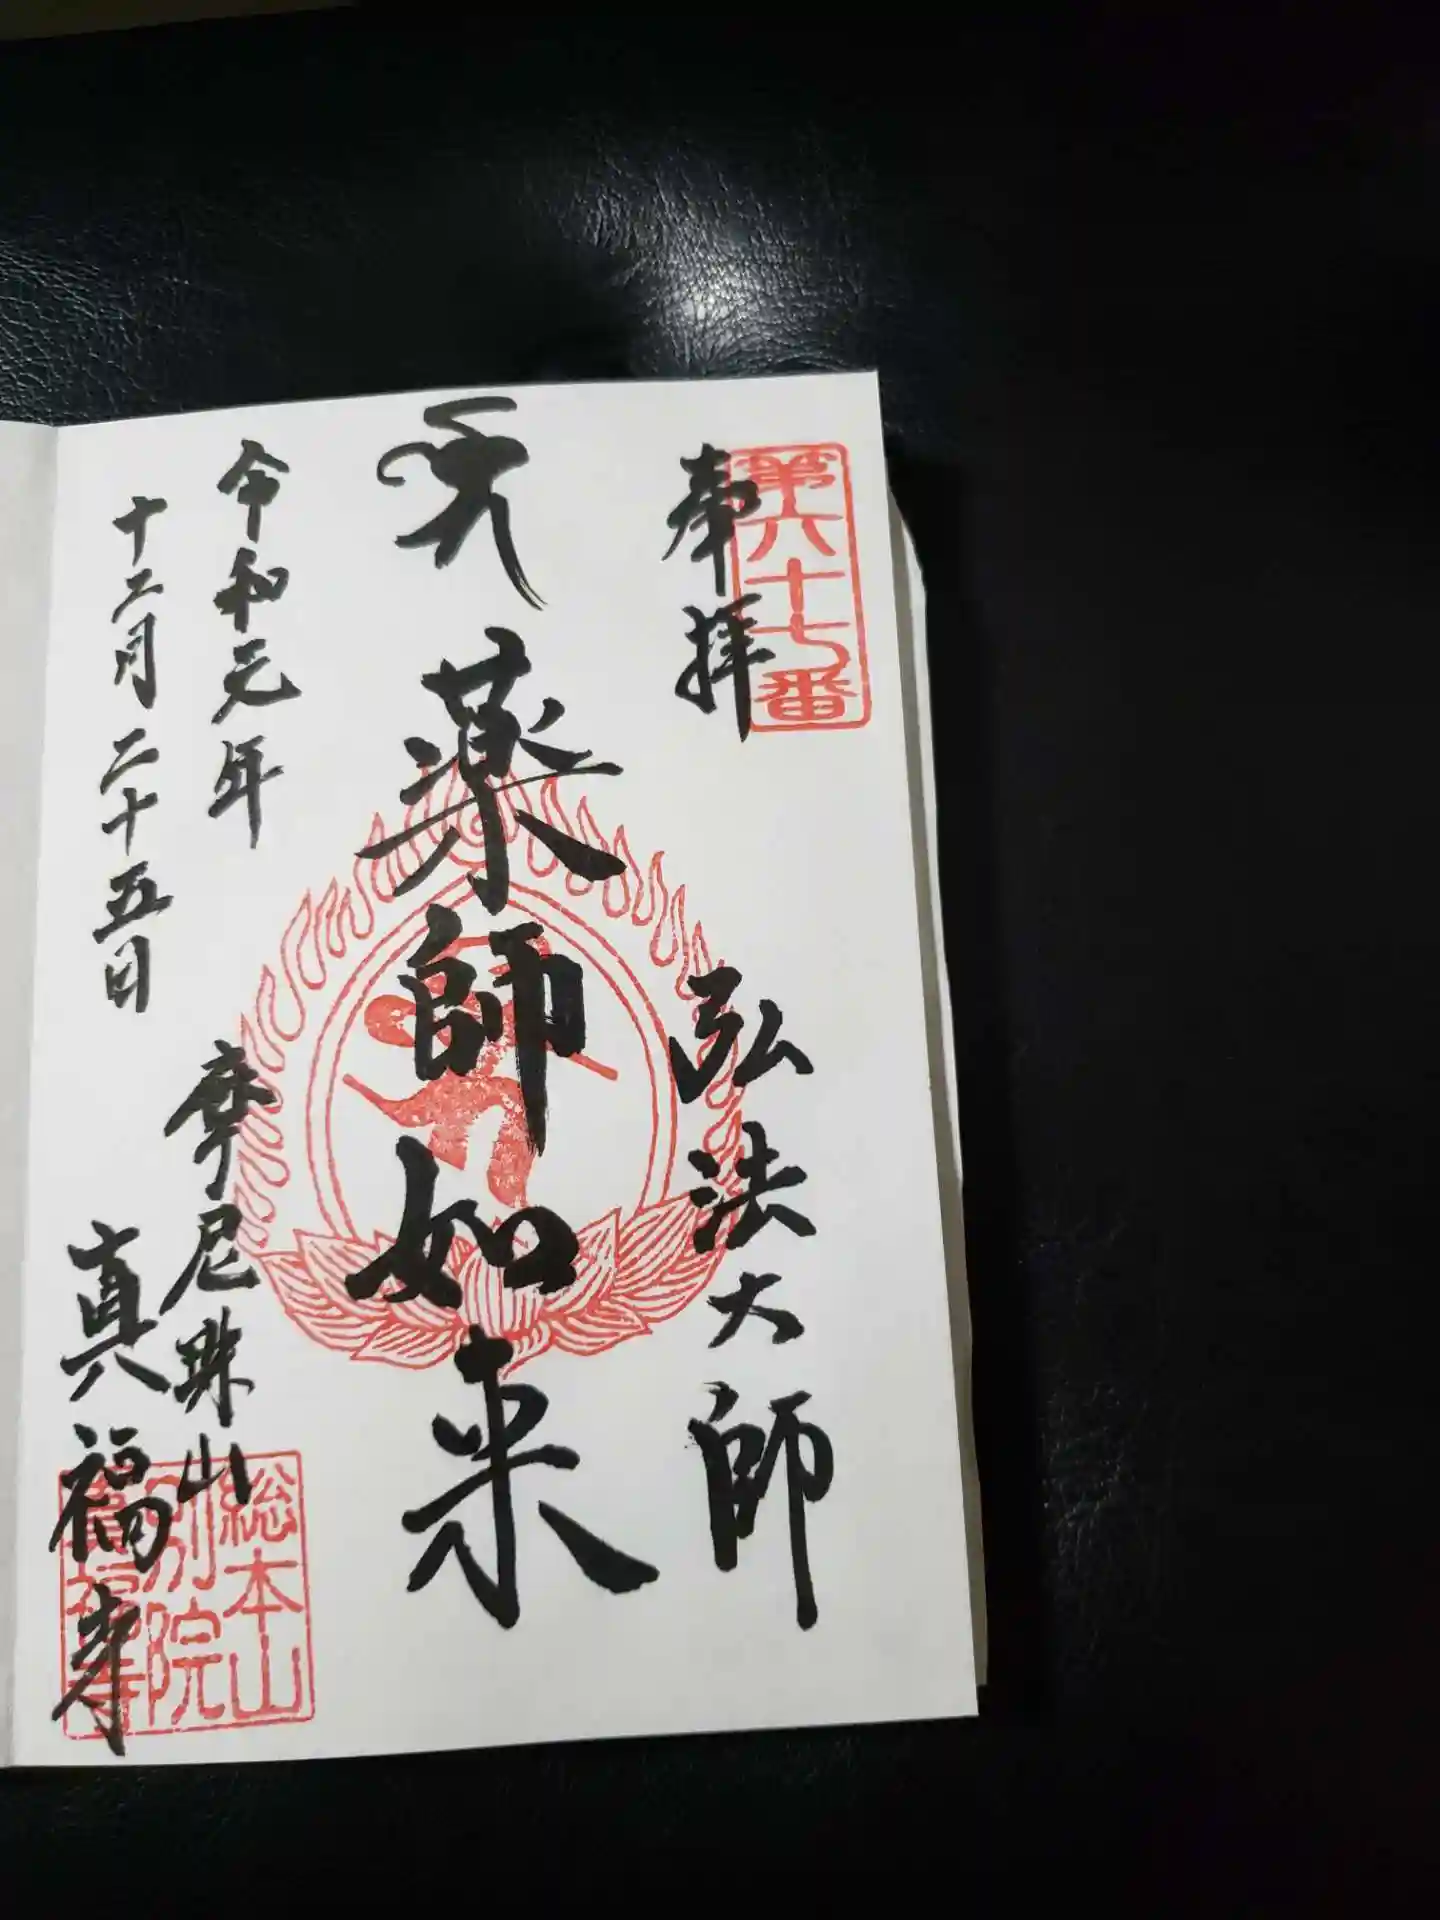 第六十七番
奉拝
弘法大師
薬師如来
令和元年
十二月二十五日
摩尼珠山
真福寺
総本山
別院
真福寺